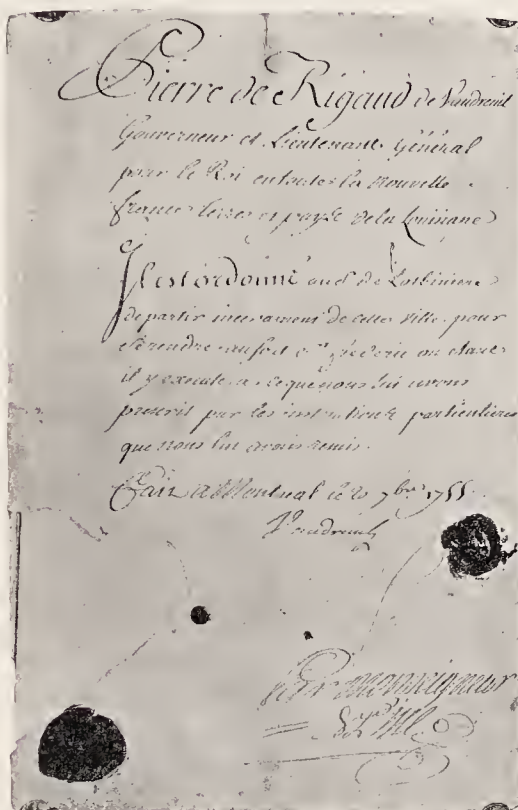 Pierre de Rigaud de Vaudreuil
Gouverneur et Lieutenant Général
pour le Roi en toutes la Nouvelle
france terres et pays de la Louisiane
Il est ordonné au Sr. de Lotbiniere
de partir incessament de cette ville pour
se rendre au fort St. frederic ou etant
il y executera ce que nous lui avons
prescrit par les instructions particulieres
que nous lui avons remis.
Fait à Montreal le 20 7bre 1755
Vaudreuil
Par Monseigneur